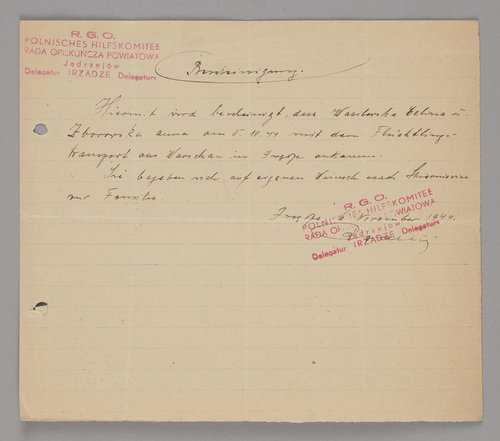 R. G. O.
POLNISCHES HILFSKOMITEE
RADA OPIEKUŃCZA POWIATOWA
Jędrzejów
Delegatur IRZĄDZE Delegatura
Bescheinigung.
Hiermit wird bescheinigt, dass Wasilewska u.
Zborowska Anna am 5.10.44 mit dem Flüchtlings-
transport aus Warschau in Irządze ankamen.
Sie begeben sich auf eigenen Wunsch nach
zur Familie.
November 1944.
R. G. O.
POLNISCHES HILFSKOMITEE
RADA OPIEKUŃCZA POWIATOWA
Jędrzejów
Delegatur IRZĄDZE Delegatura